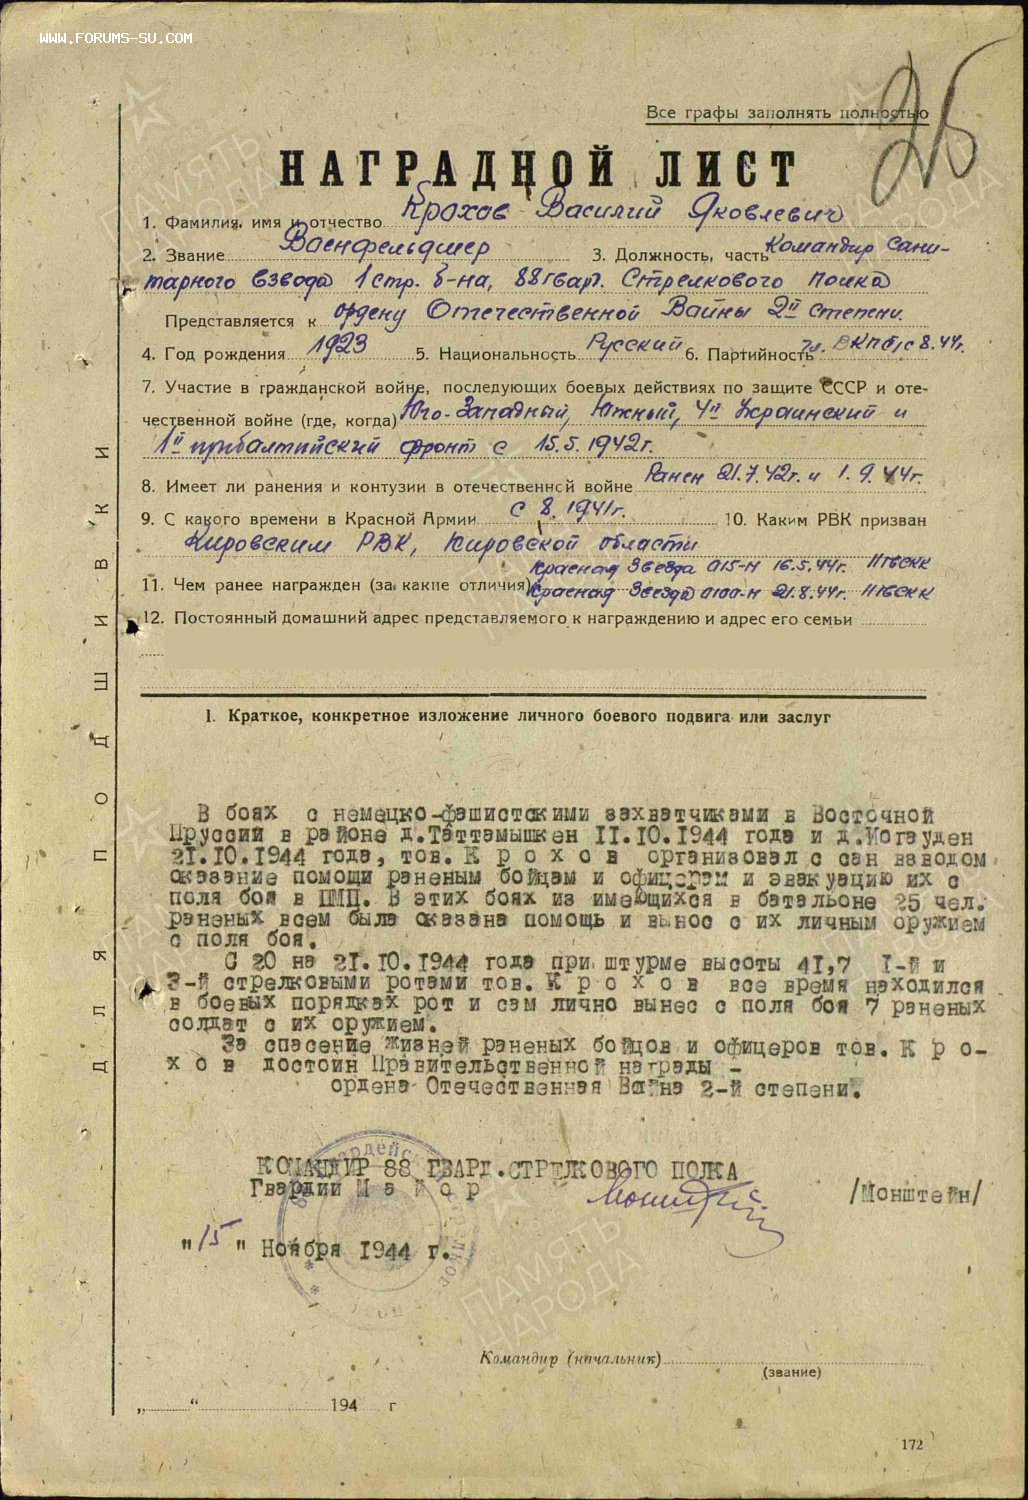 WWW.FORUMS-SU.COM
Все графы заполнять полностью
26
НАГРАДНОЙ ЛИСТ
1. Фамилия, имя и отчество Крохов Василий Яковлевич
2. Звание Военфельдшер 3. Должность, часть Командир сани-
тарного взвода 1 стр. б-на, 88 гвар. Стрелкового полка
Представляется к ордену Отечественной Войны 2й степени.
4. Год рождения 1923 5. Национальность Русский 6. Партийность ВКПб/с 8.44г.
7. Участие в гражданской войне, последующих боевых действиях по защите СССР и оте-
чественной войне (где, когда) Юго-Западный, Южный, 4й Украинский и
1й прибалтийский фронт с 15.5.1942г.
8. Имеет ли ранения и контузии в отечественной войне Ранен 21.7.42г. и 1.9.44г.
9. С какого времени в Красной Армии с 8.1941г. 10. Каким РВК призван
Кировским РВК, Кировской области
Красная Звезда 015-н 16.5.44г. 11гвскк
11. Чем ранее награжден (за какие отличия) Красная Звезда 0100-н 21.8.44г. 11гвскк
12. Постоянный домашний адрес представляемого к награждению и адрес его семьи
I. Краткое, конкретное изложение личного боевого подвига или заслуг
В боях с немецко-фашистскими захватчиками в Восточной
Пруссии в районе д.Таттамышкен 11.10.1944 года и д.Иогауден
21.10.1944 года, тов. К р о х о в организовал с сан взводом
оказание помощи раненым бойцам и офицерам и эвакуацию их с
поля боя в ПМП. В этих боях из имеющихся в батальоне 25 чел.
раненых всем была оказана помощь и вынос с их личным оружием
с поля боя.
С 20 на 21.10.1944 года при штурме высоты 41,7 1-й и
3-й стрелковыми ротами тов. К р о х о в все время находился
в боевых порядках рот и сам лично вынес с поля боя 7 раненых
солдат с их оружием.
За спасение жизней раненых бойцов и офицеров тов. К р о-
х о в достоин Правительственной награды -
ордена Отечественная Война 2-й степени.
КОМАНДИР 88 ГВАРД.СТРЕЛКОВОГО ПОЛКА
Гвардии М а й о р /Монштейн/
"15" Ноября 1944 г.
Командир (начальник)
(звание)
„ “ 194 г
172
ДЛЯ ПОДШИВКИ
ПАМЯТЬ НАРОДА